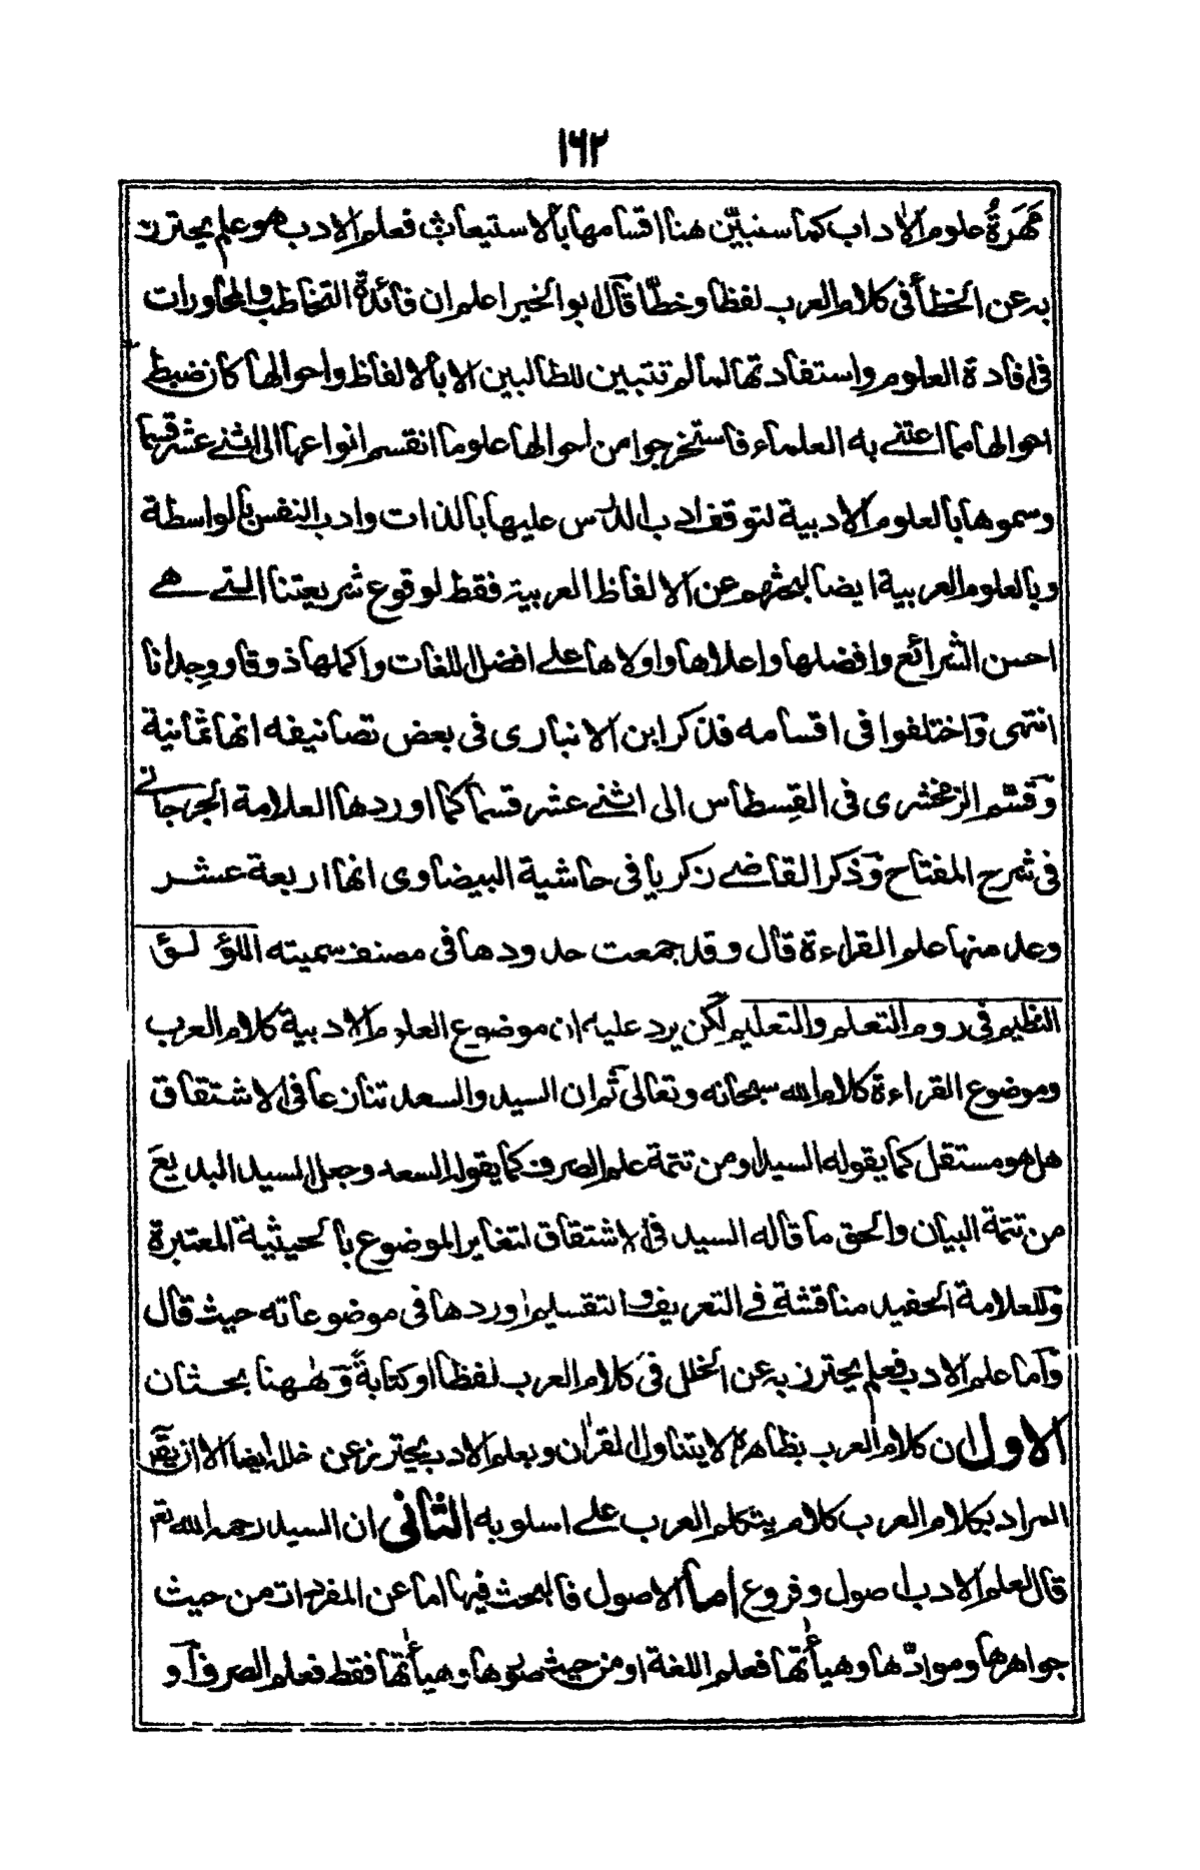 ١٦٢
مَهَرَةُ علوم الاداب كما سنبيّن هنا اقسامها بالاستيعاب فعلم الادب هو علم يحترز
به عن الخطأ فى كلام العرب لفظا وخطّا قال ابو الخير اعلم ان فائدة التخاطب والمحاورات
فى افادة العلوم واستفادتها لما لم تتبين للطالبين الا بالالفاظ واحوالها كان ضبط
احوالها مما اعتنى به العلماء فاستخرجوا من احوالها علوما انقسم انواعها الى اثنى عشر قسما
وسموها بالعلوم الادبية لتوقف ادب الدرس عليها بالذات وادب النفس بالواسطة
وبالعلوم العربية ايضا لبحثهم عن الالفاظ العربية فقط لوقوع شريعتنا التى هى
احسن الشرائع وافضلها واعلاها واولاها على افضل اللغات واكملها ذوقا ووجدانا
انتهى واختلفوا فى اقسامه فذكر ابن الانبارى فى بعض تصانيفه انها ثمانية
وقسّم الزمخشرى فى القسطاس الى اثنى عشر قسما كما اوردها العلامة الجرجانى
فى شرح المفتاح وذكر القاضى زكريا فى حاشية البيضاوى انها اربعة عشر
وعد منها علم القراءة قال وقد جمعت حدودها فى مصنف سميته اللؤلؤ
النظيم فى روم التعلم والتعليم لكن يرد عليه ان موضوع العلوم الادبية كلام العرب
وموضوع القراءة كلام الله سبحانه وتعالى ثم ان السيد والسعد تنازعا فى الاشتقاق
هل هو مستقل كما يقوله السيد او من تتمة علم الصرف كما يقوله السعد وجعل السيد البديع
من تتمة البيان والحق ما قاله السيد فى الاشتقاق لتغاير الموضوع بالحيثية المعتبرة
وللعلامة الحفيد مناقشة فى التعريف والتقسيم اوردها فى موضوعاته حيث قال
واما علم الادب فعلم يحترز به عن الخلل فى كلام العرب لفظا او كتابةً وهٰهنا بحثان
الاول ان كلام العرب بظاهره لا يتناول القراٰن وبعلم الادب يحترز عن خلله ايضا الا ان يقال
المراد بكلام العرب كلام يتكلم العرب على اسلوبه الثانى ان السيد رحمه الله تع
قال لعلم الادب اصول وفروع اما الاصول فالبحث فيها اما عن المفردات من حيث
جواهرها وموادّها وهيأتها فعلم اللغة او من حيث صورها وهيأتها فقط فعلم الصرف او